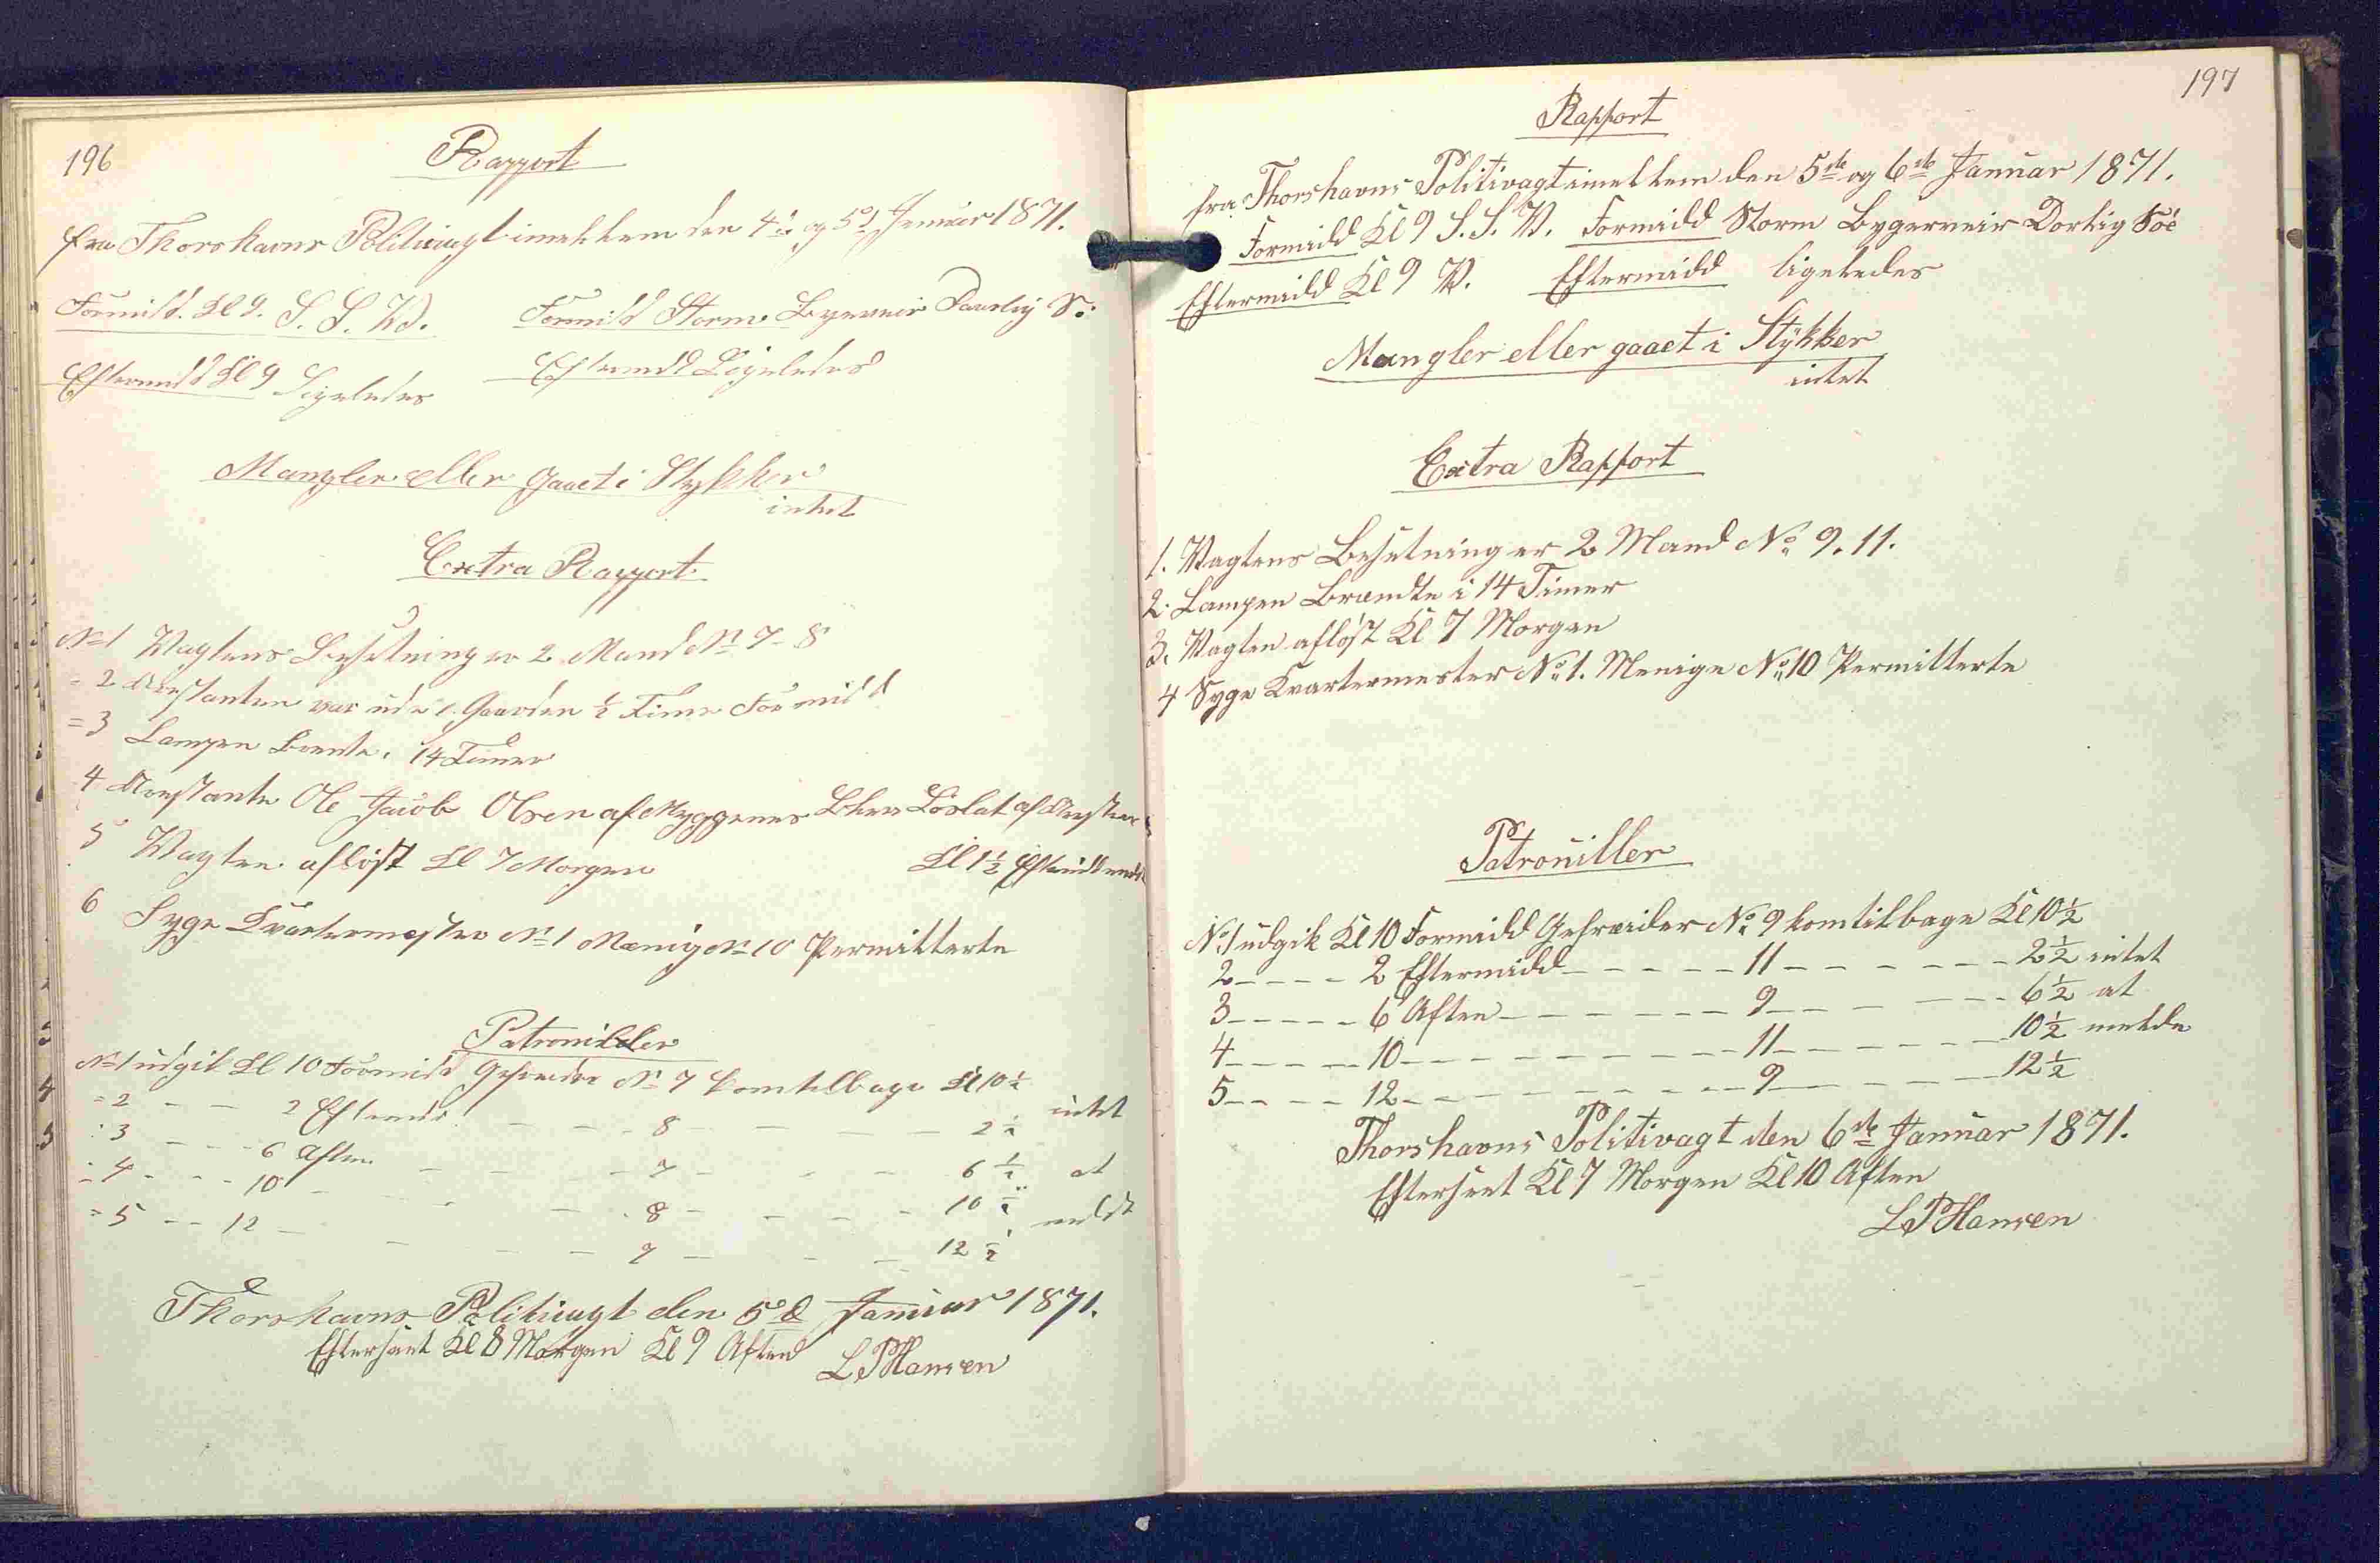 196
Rapport
fra Thorshavns Politivagt imellem den 4de og 5te Januar 1871.
Formidd. Kl 9. S. S. W. Formidd Storm Bygeveir
Eftermidd Kl 9 Ligeledes Eftermdd Ligeledes
Mangler eller gaaet i Stykker
intet
Extra Rapport
No 1 Vagtens Besetning er 2 Mand No 7-8
= 2 Arestanten var ude i Gaarden ½ Time Formidd
= 3 Lampen brente i 14 Timer
4 Arestanten Ole Jacob Olsen af Myggenes blev Löslat af Aresten
Kl 1½ Eftermidd
5 Vagten aflöst Kl 7 Morgen
6 Syge Kvartermester No 1 Menig No 10 Permitterte
Patrouiller
No 1 udgik Kl 10 Formidd Gefreider No 7 kom tilbage Kl 10½
= 2 - - 2 Eftermd. - - - 8 - - - 2½ intet
= 3 - - - 6 Aften - - - 7 - - - 6½ at
= 4 - - - 10 - - - 8 - - - 10½
= 5 - - 12 - - - 7 - - - 12½ meldt
Thorshavns Politivagt den 5te Januar 1871.
Efterseet Kl 8 Morgen Kl 9 Aften
LPHansen
197
Rapport
fra Thorshavns Politivagt imellem den 5te og 6te Januar 1871.
Formidd Kl 9 S. S. W. Formidd Storm Bygerveir Dorlig Söe
Eftermidd Kl 9 W. Eftermidd ligeledes
Mangler eller gaaet i Stykker
intet
Extra Rapport
1. Vagtens Besetning er 2 Mand No 9. 11.
2. Lampen Brændte i 14 Timer
3. Vagten aflöst Kl 7 Morgen
4 Syge Kvartermester No 1. Menige No 10 Permitterte
Patrouiller
No 1 udgik Kl 10 Formidd Gefreider No 9 kom tilbage Kl 10½
2 - - - - 2 Eftermidd - - - - - 11 - - - - - - 2½ intet
3 - - - - - 6 Aften - - - - - - 9 - - - - - 6½ at
4 - - - - - 10 - - - - - - - - 11 - - - - - - 10½ melde
5 - - - - 12 - - - - - - - - 9 - - - - - 12½
Thorshavns Politivagt den 6te Januar 1871.
Efterseet Kl 7 Morgen Kl 10 Aften
LPHansen